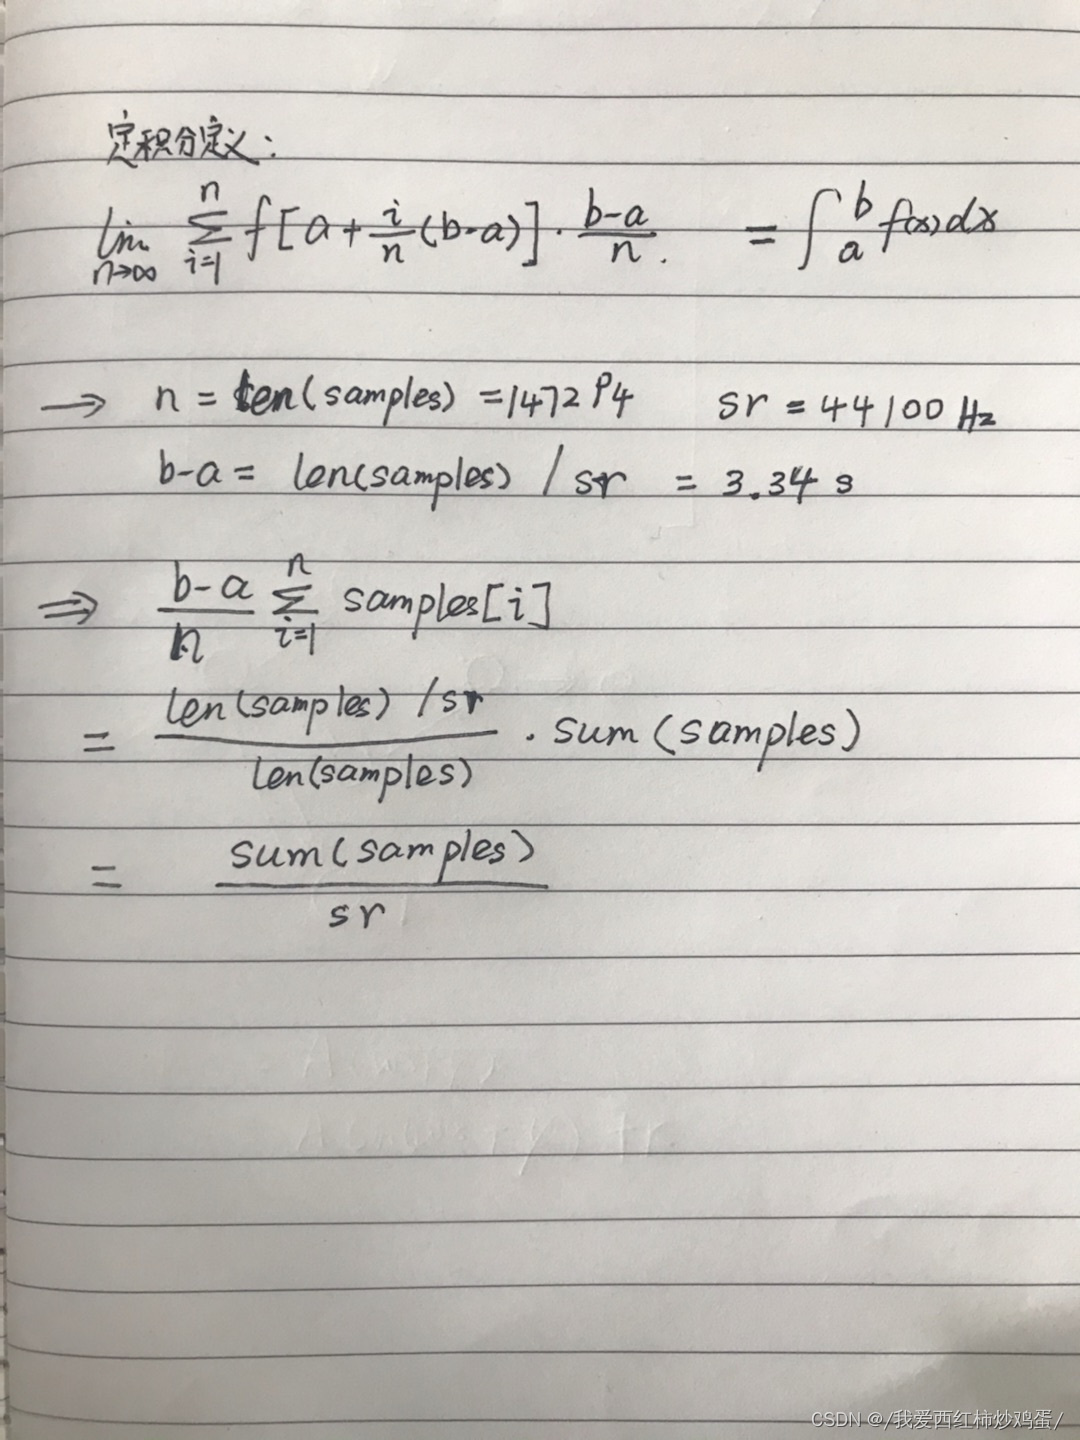 定积分定义:
lim n→∞ n Σ i=1 f[a+i/n(b-a)]·b-a/n. = ∫ b a f(x)dx
→ n = len(samples) =147294 sr = 44100 Hz
b-a = len(samples) / sr = 3.34 s
⇒ b-a/n n Σ i=1 samples[i]
= len(samples) /sr / len(samples) · sum(samples)
= sum(samples) / sr
CSDN @/我爱西红柿炒鸡蛋/